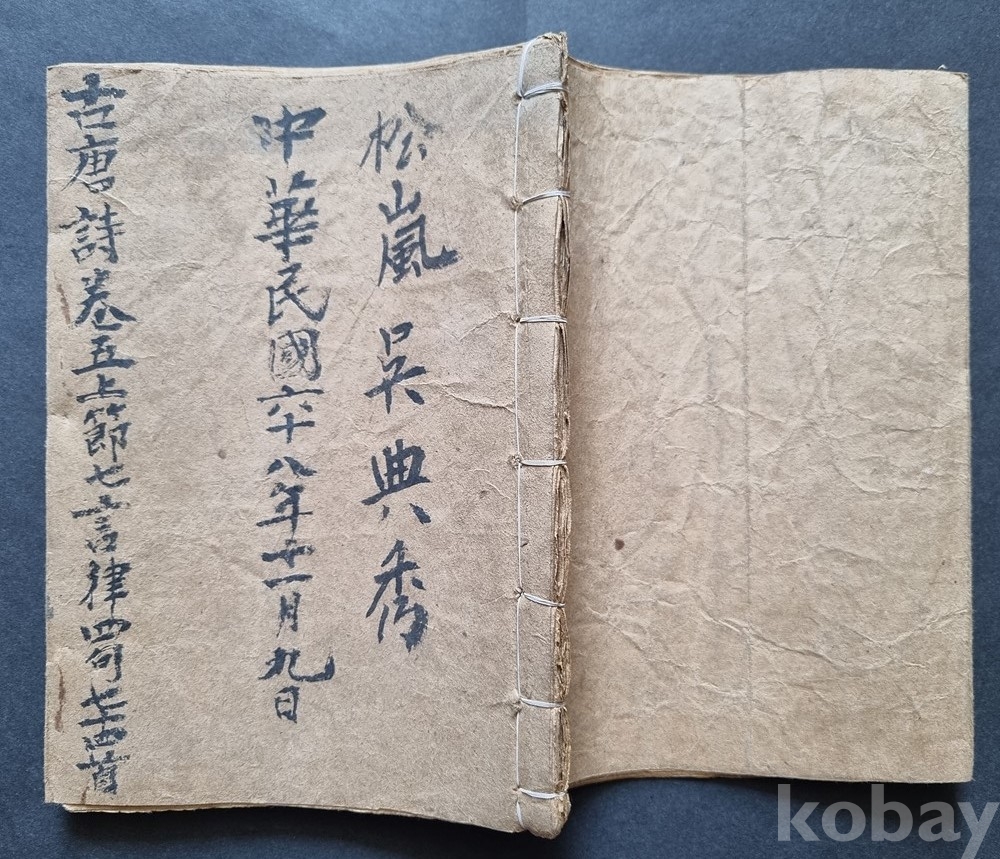 松嵐吳典秀
中華民國六十八年十一月九日
古唐詩卷五上節七言律四句七十四首
kobay